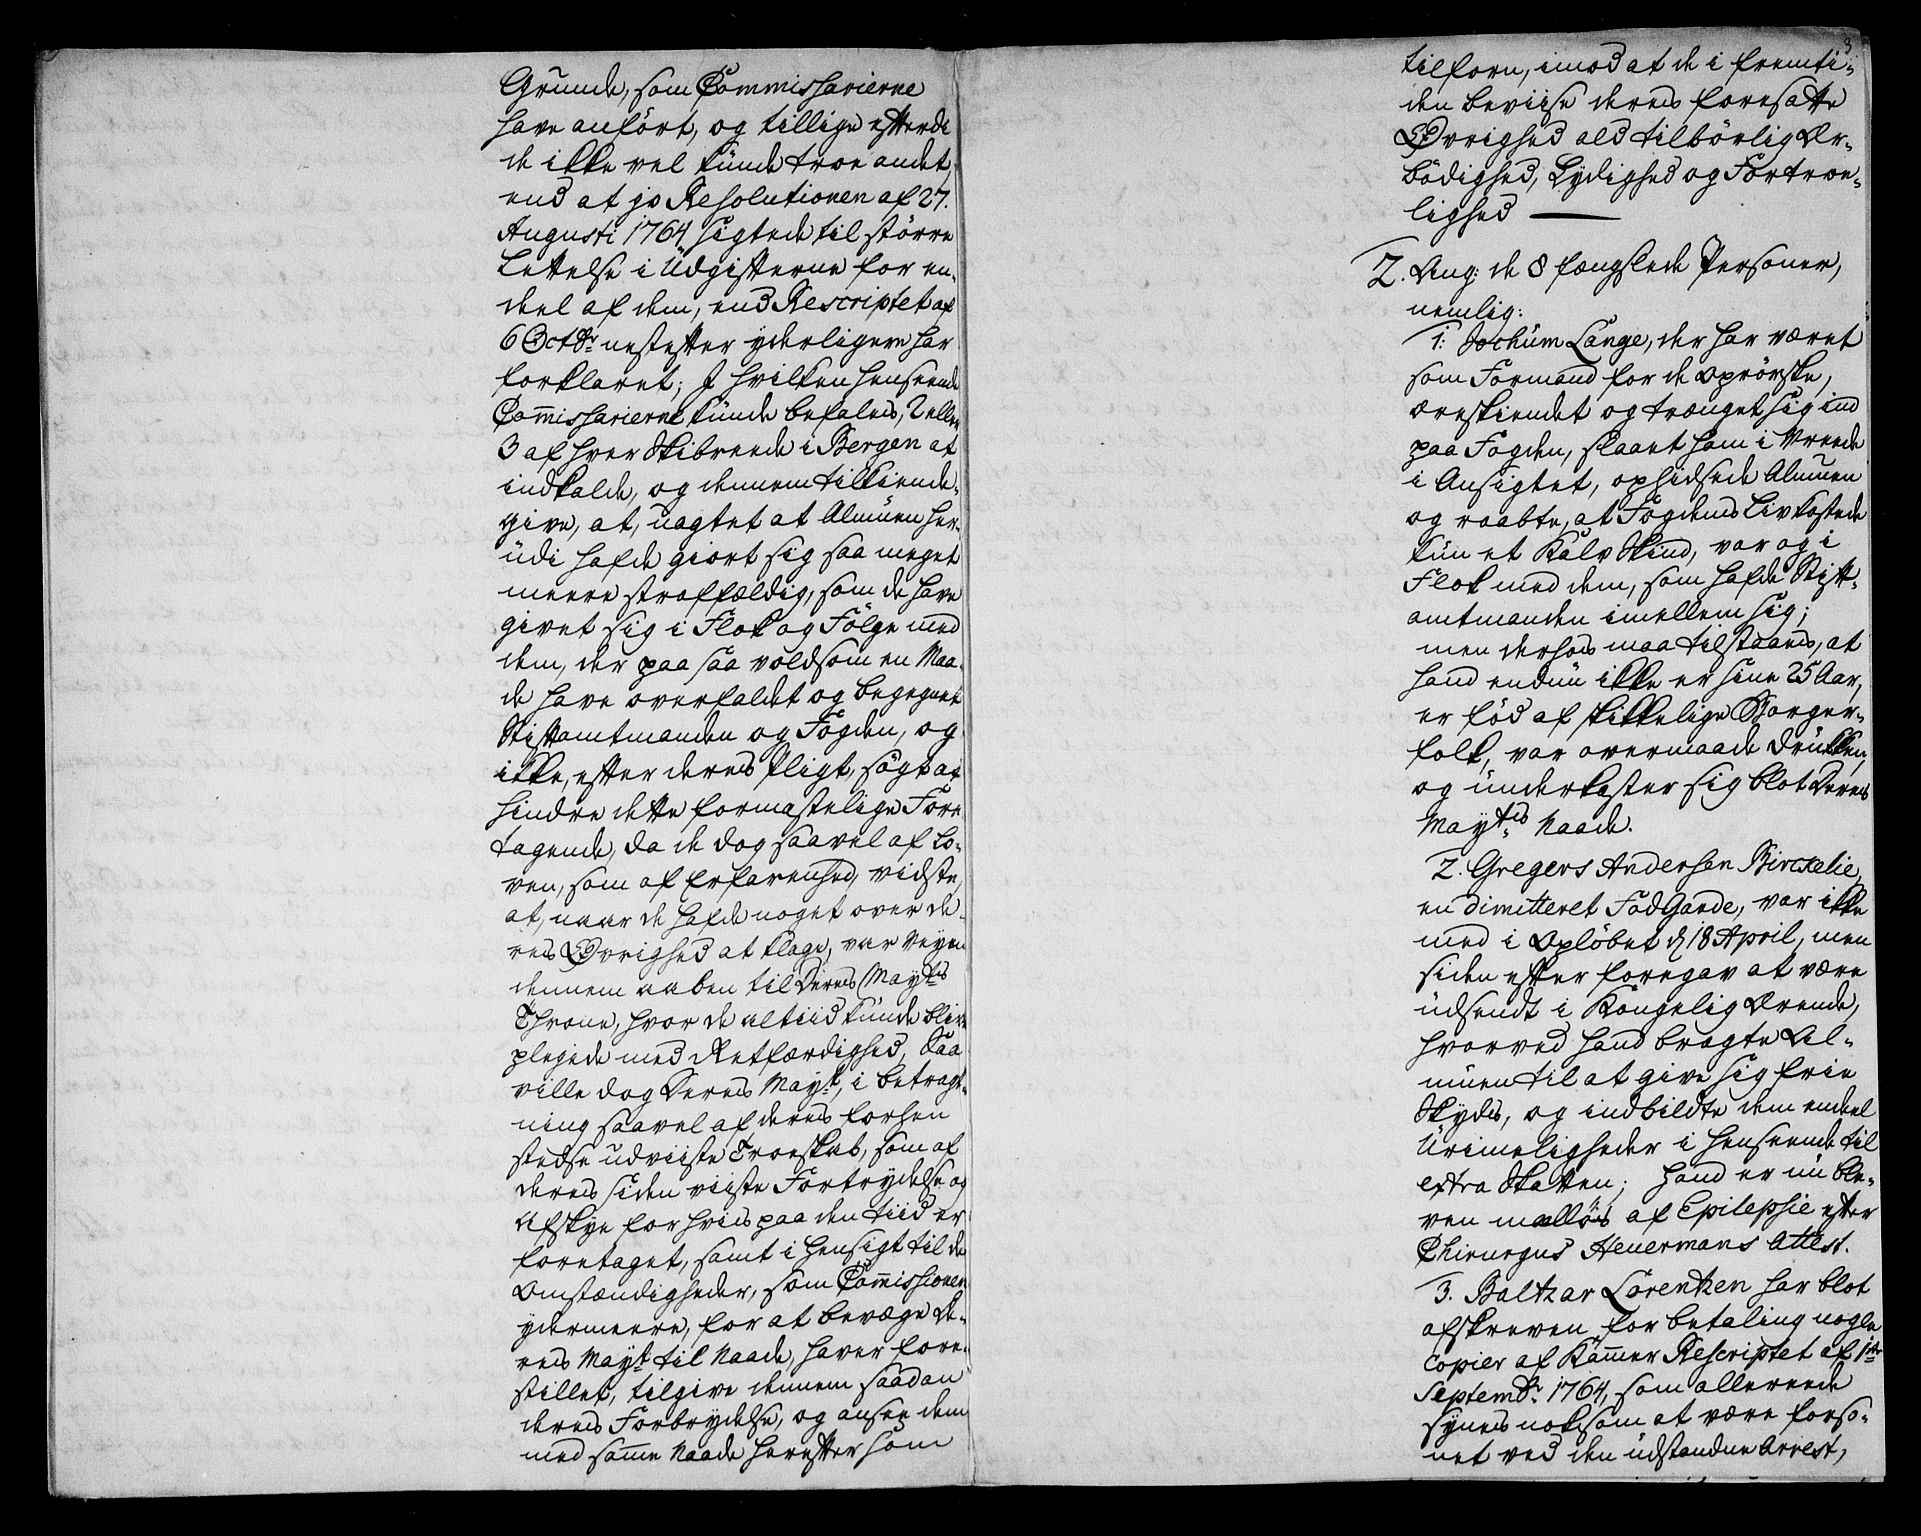 Grunde, som Commissarierne
have anført, og tillige efterdi
de ikke vel kunde troe andet,
end at jo Resolutionen af 27.
Augusti 1764 sigtede til større
Lettelse i Udgifterne for en-
deel af dem, end Rescriptet af
6 Octbr: nestefter yderligere har
forklaret; J hvilken henseende
Commissarierne kunde befales, 2 eller
3 af hver Skibrede i Bergen at
indkalde, og dennem tilkiende-
give, at, uagtet at Almuen her-
udi hafde giort sig saa meget
meere straffældig, som de have
givet sig i Flok og Følge med
dem, der paa saa voldsom en Maa-
de have overfaldet og begegnet
Stiftamtmanden og Fogden, og
ikke, efter deres Pligt, søgt at
hindre dette formastelige Fore-
tagende, da de dog saavel af Lo-
ven, som af Erfarenhed, vidste,
at, naar de hafde noget over de-
res Øvrighed at klage, var Veyen
dennem aaben til Deres Mayts
Throne, hvor de altiid kunde blive
plejede med Retfærdighed, Saa
ville dog Deres Mayt:, i betragt-
ning saavel af deres forhen
stedse udviiste Troeskab, som af
deres siden viiste Fortrydelse og
Afskye for hvis paa den tiid er
foretaget, samt i hensigt til de
Omstændigheder, som Commissionen
ydermeere, for at bevæge De-
res Mayt til Naade, haver fore-
stillet, tilgive dennem saadan
deres Forbrydelse, og ansee dem
med samme Naade herefter som
3
tilforn, imod at de i fremti-
den beviise deres foresatte
Øvrighed ald tilbørlig Ær-
bødighed, Lydighed og Fortroe-
lighed ——
2. Ang: de 8 fængslede Personer,
nemlig:
1: Jochum Lange, der har været
som Formand for de Oprørske,
æreskiendet og trænget sig ind
paa Fogden, slaaet ham i Vreede
i Ansigtet, ophidsede Almuen
og raabte, at Fogdens Liv kostede
kun et Kalv Skind, var og i
Flok med dem, som hafde Stift-
amtmanden imellem sig;
men derhos maa tilstaaes, at
hand endnu ikke er sine 25 Aar,
er fød af skikkelige Borger-
folk, var overmaade drukken,
og underkaster sig blot Deres
Mayts Naade.
2. Gregers Andersen Birckelie,
en dimitteret FodGarde, var ikke
med i Opløbet d 18 April, men
siden efter foregav at være
udsendt i Kongelig Ærende,
hvorved hand bragte Al-
muen til at give sig frie
Skyds, og indbildte dem endeel
Urimeligheder i henseende til
extra Skatten; hand er nu ble-
ven malløs af Epilepsie efter
Chirurgus Heuermans Attest.
3. Baltzar Lorentzen har blot
afskreven for betaling nogle
Copier af Kammer Rescriptet af 1ste
Septembr: 1764, som allereede
synes noksom at være forso-
net ved den udstandne Arrest,